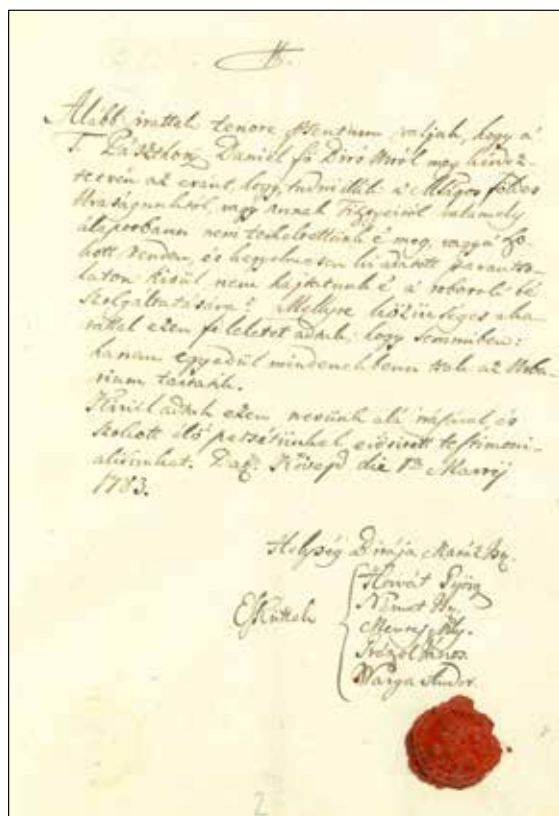 Alább irattak tenore præsentium valjuk, hogy a'
T. Pászthory Daniel fő Biró Urtól meg kérdez-
tetvén az eránt, hogy, tudniillik: a' Mlgos földes
Uraságunktól, vagy annak Tisztyeitől valamely
állapotban nem terheltettünk é meg, vagy a' szo-
kott renden, és kegyelmesen ki adatott parantso-
laton kivül nem hajtatunk é a' robotok bé
szolgáltatására? Mellyre közönséges aka-
rattal ezen feleletet adtuk, hogy semmiben:
hanem egyedül mindenekbenn tsak az Urba-
rium tartatik.
Kirül adtuk ezen nevünk alá irásával, és
szokott élő petsétünkel erössitett testimoni-
alisunkat. Die 1 Marty
1783.
Helység Birája Hy.
Esküttek
Horvát Györg
Német Hy.
János.
Warga Andor.
2